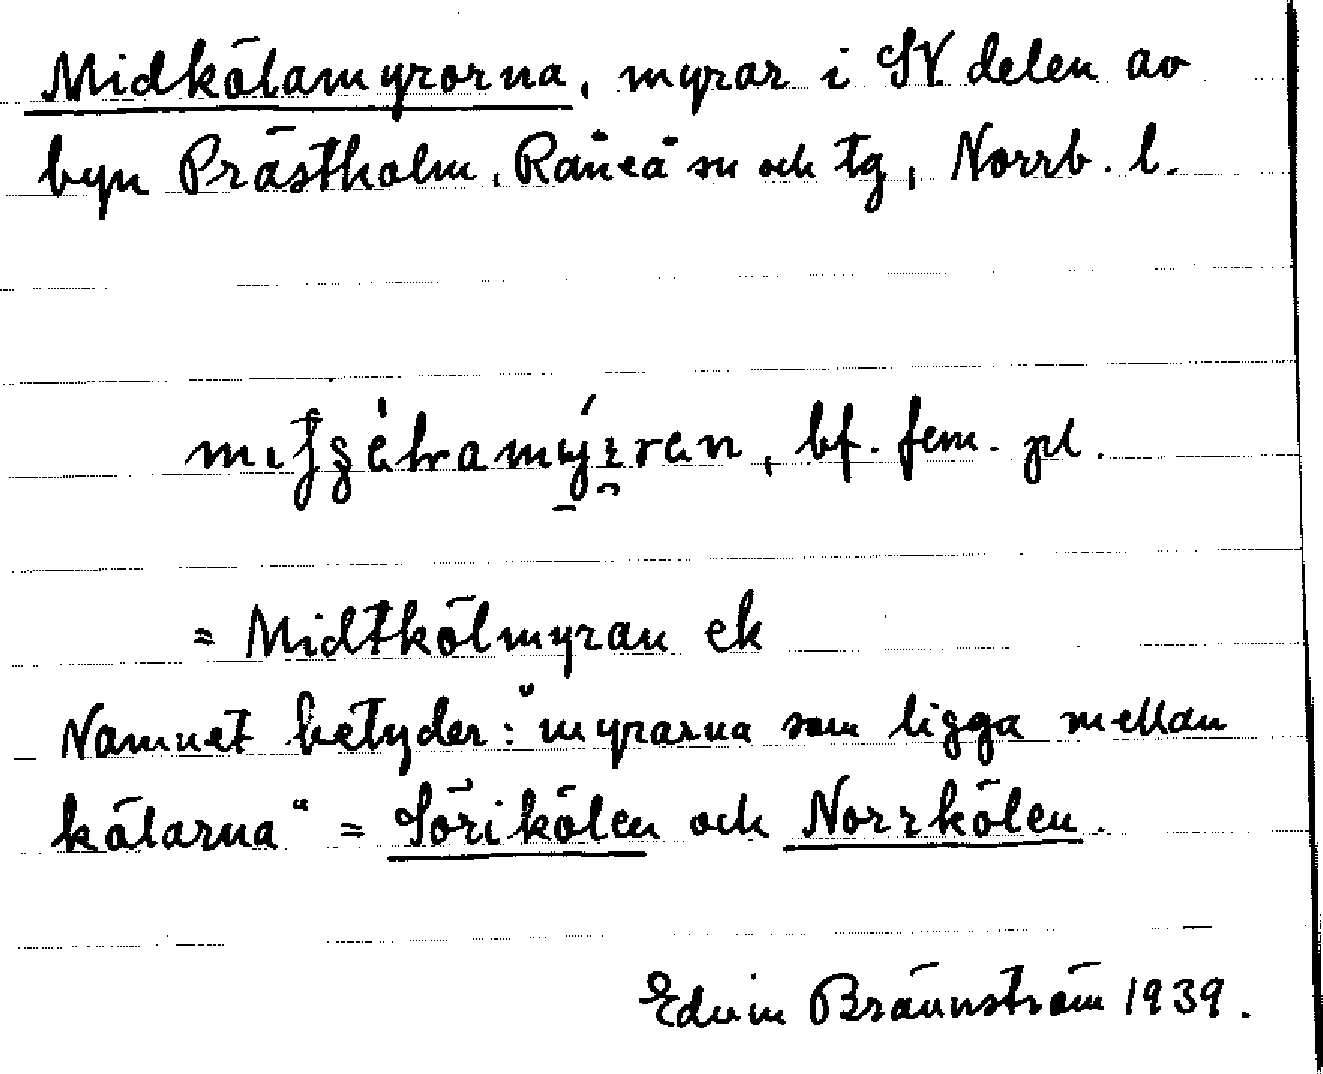 Midkölamyrorna, myrar i SV delen av
byn Prästholm, Råneå sn och tg, Norrb. l.
bf. fem. pl.
= Midtkölmyran ek
Namnet betyder: "myrarna som ligga mellan
kölarna" = Sörikölen och Norrkölen.
Edvin Brännström 1939.